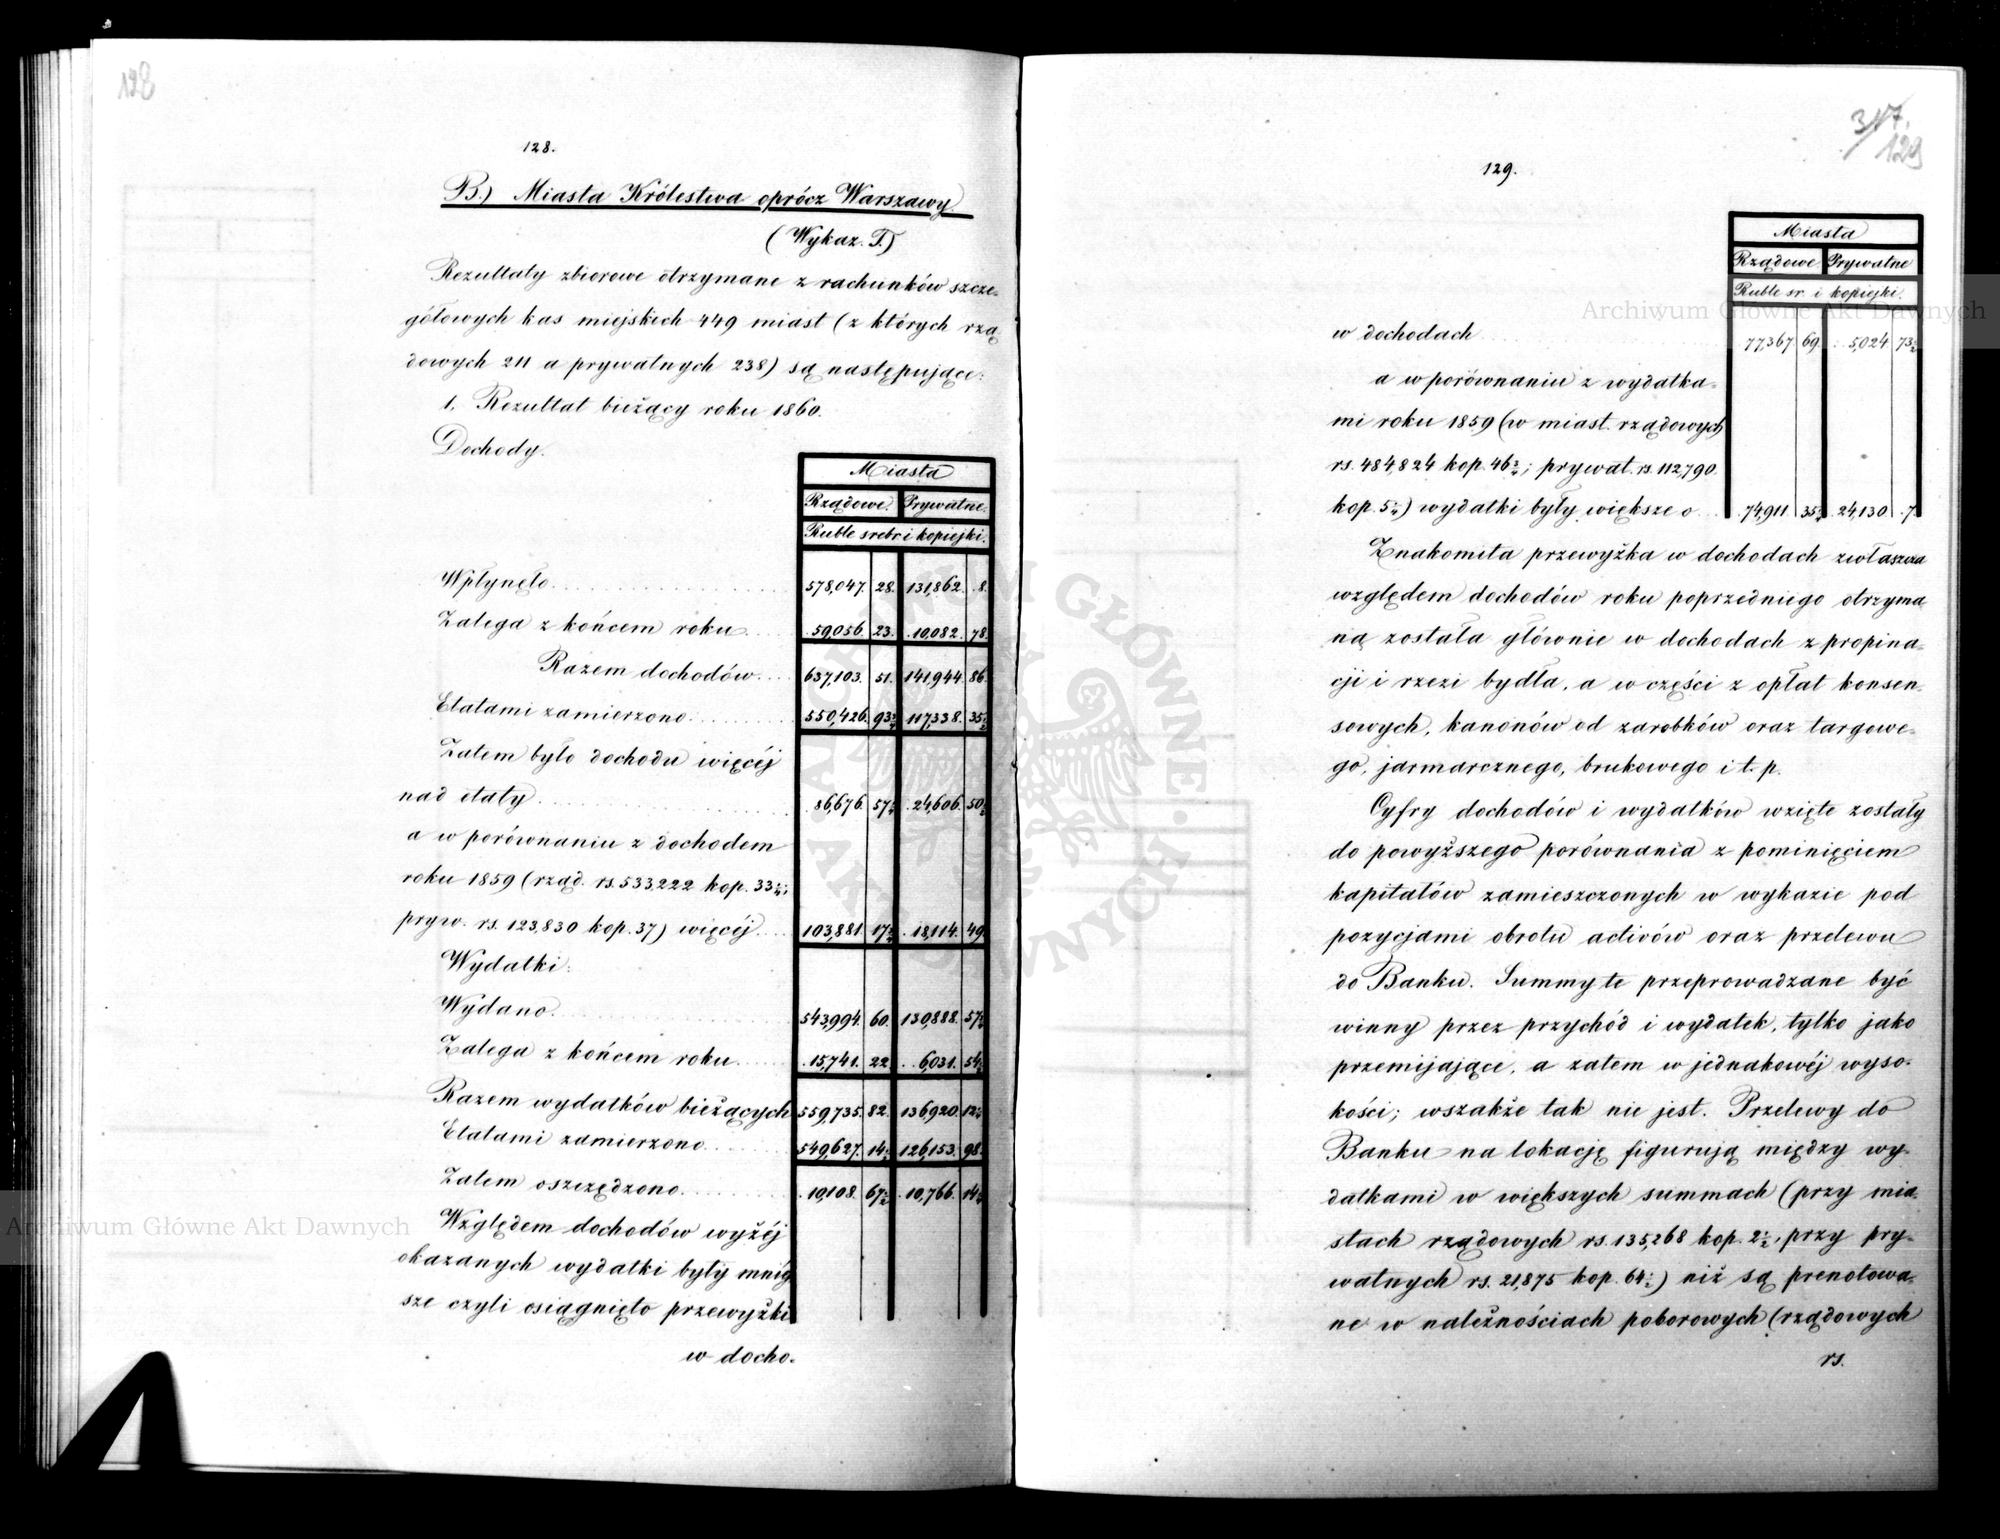 128
128.
B.) Miasta Królestwa oprócz Warszawy.
(Wykaz. T.)
Rezultaty zbiorowe otrzymane z rachunków szcze-
gółowych kas miejskich 449 miast (z których rzą
dowych 211 a prywatnych 238) są następujące:
1. Rezultat bieżący roku 1860.
Dochody.
Miasta
Rządowe. Prywatne.
Ruble srebr. i kopiejki.
Wpłynęło 578,047. 28. 131,862. 8.
Zalega z końcem roku 59,056. 23. 10,082. 78.
Razem dochodów 637,103. 51. 141,944. 86.
Etatami zamierzono 550,426. 93 117,338. 35½
Zatem było dochodu więcéj
nad etaty 86,676. 57 24,606. 50½
a w porównaniu z dochodem
roku 1859 (rząd. rs. 533,222 kop. 33
pryw. rs. 123,830 kop. 37) więcéj 103,881. 17 18,114. 49
Wydatki:
Wydano 543,994. 60. 130,888. 57
Zalega z końcem roku 15,741. 22 6,031. 54
Razem wydatków bieżących 559,735. 82. 136,920. 12
Etatami zamierzono 549,627. 14 126,153. 98.
Zatem oszczędzono 10,108. 67 10,766. 14
Względem dochodów wyżéj
okazanych wydatki były mniéj
sze czyli osiągnięto przewyżki
w docho-
317.
129
129.
Miasta
Rządowe Prywatne
Ruble sr. i kopiejki.
w dochodach 77,367 69. 5,024 73
a w porównaniu z wydatka-
mi roku 1859 (w miast. rządowych
rs. 484,824 kop. 46; prywat. rs 112,790.
kop. 5) wydatki były większe o 74,911. 35 24,130. 7
Znakomita przewyżka w dochodach zwłaszcza
względem dochodów roku poprzedniego otrzyma
ną została głównie w dochodach z propina-
cji i rzezi bydła, a w części z opłat konsen-
sowych, kanonów od zarobków oraz targowe-
go, jarmarcznego, brukowego i t. p.
Cyfry dochodów i wydatków wzięte zostały
do powyższego porównania z pominięciem
kapitałów zamieszczonych w wykazie pod
pozycjami obrotu activów oraz przelewu
do Banku. Summy te przeprowadzane być
winny przez przychód i wydatek, tylko jako
przemijające, a zatem w jednakowéj wyso-
kości; wszakże tak nie jest. Przelewy do
Banku na lokację figurują między wy-
datkami w większych summach (przy mia-
stach rządowych rs. 135,268 kop. 2½, przy pry-
watnych rs. 21,875 kop. 64½) niż są prenotowa-
ne w należnościach poborowych (rządowych
rs.
Archiwum Główne Akt Dawnych
Archiwum Główne Akt Dawnych